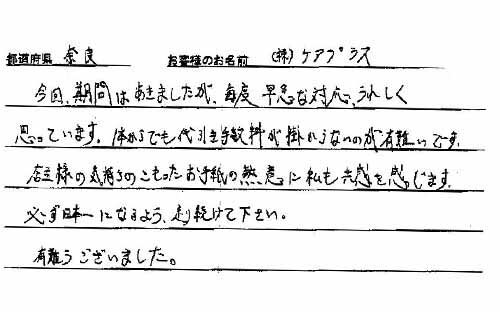 都道府県 奈良 お客様のお名前 (株)ケアプラス
今回、期間はあきましたが、毎度 早急な対応、うれしく
思っています。体からでも代引き手数料が掛からないのが有難いです。
店主様の気持ちのこもったお手紙の熱意に私も共感を感じます。
必ず日本一になるよう、走り続けて下さい。
有難うございました。